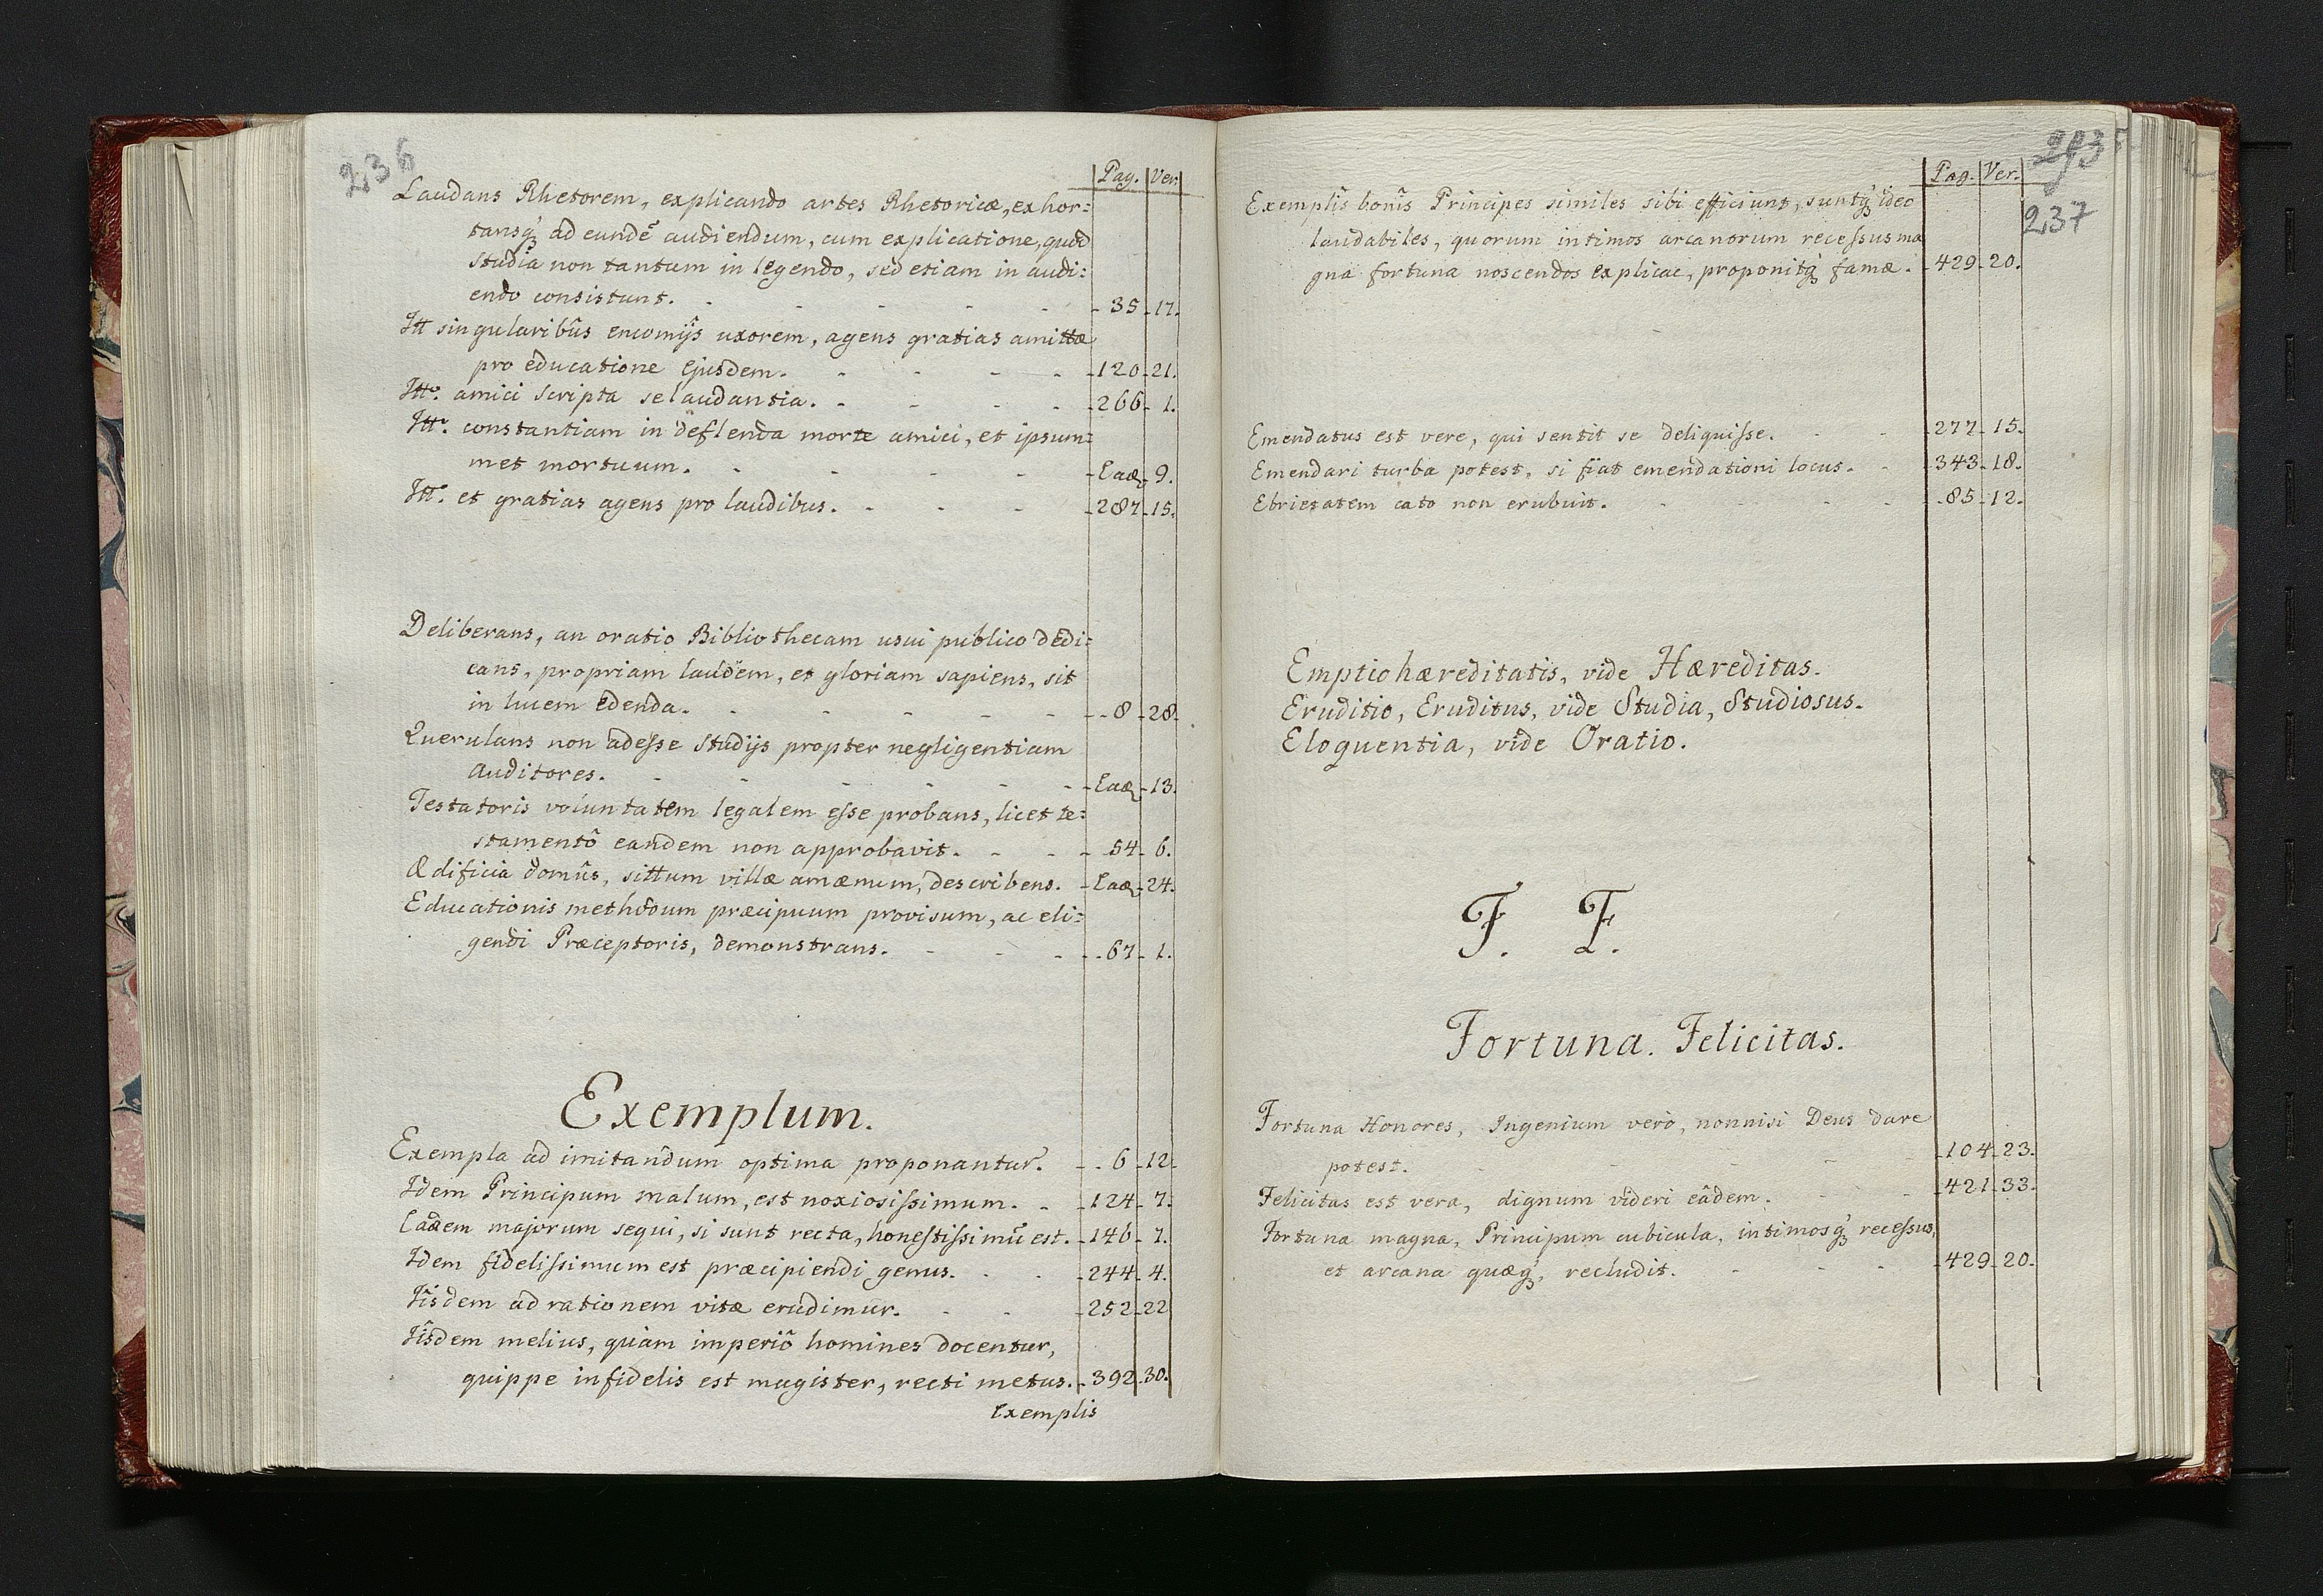 236
Pag. Ver.
Laudans Rhetorem, explicando artes Rhetoricæ, exhor=
tansq́ꝫ ad eundẽ audiendum, cum explicatione, quod
studia non tantum in legendo, sed etiam in audi=
endo consistunt. - - - - - 35 - 17.
Itt singularibûs encomijs uxorem, agens gratias amittæ
pro educatione ejusdem. - - - - 120 - 21.
Itto. amici scripta se laudantia. - - - - 266 - 1.
Itto. constantiam in deflenda morte amici, et ipsum=
met mortuum. - - - - Eaꝫ - 9.
Itto. et gratias agens pro laudibus. - - - 287 - 15.
Deliberans, an oratio Bibliothecam usui publico dedi=
cans, propriam laudem, et gloriam sapiens, sit
in lucem edenda. - - - - - 8 - 28.
Querulans non adesse studijs propter negligentiam
auditores. - - - - - Eaꝫ - 13.
Testatoris voluntatem legalem esse probans, licet te=
stamentô eandem non approbavit. - - - 54 - 6.
Ædificia domûs, sittum villæ amænum, describens. - Eaꝫ - 24.
Educationis methodum præcipuum provisum, ac eli=
gendi Præceptoris, demonstrans. - - - 67 - 1.
Exemplum.
Exempla ad imitandum optima proponantur. - - 6 - 12.
Idem Principum malum, est noxiosissimum. - - 124 - 7.
Eadem majorum sequi, si sunt recta, honestissimũ est. - 146 - 7.
Idem fidelissimum est præcipiendi genus. - - - 244 - 4.
Iîsdem ad rationem vitæ erudimur. - - - 252 - 22
Iîsdem melius, quàm imperiô homines docentur,
quippe infidelis est magister, recti metus. - 392 - 30.
Exemplis
237
Pag. Ver.
Exemplîs bonîs Principes similes sibi efficiunt, suntq́ꝫ ideo
laudabiles, quorum intimos arcanorum recessus ma
gna fortuna noscendos explicat, proponitq́ꝫ famæ. - 429 - 20.
Emendatus est vere, qui sentit se deliquisse. - - 277 - 15.
Emendari turba potest, si fiat emendationi locus. - - 343 - 18.
Ebrietatem cato non erubuit. - - - - 85 - 12.
Emptio hæreditatis, vide Hæreditas.
Eruditio, Eruditus, vide Studia, Studiosus.
Eloquentia, vide Oratio.
F. F.
Fortuna. Felicitas.
Fortuna Honores, Ingenium verò, nonnisi Deus dare
potest. - - - - - 104 - 23.
Felicitas est vera, dignum videri eâdem. - - - 421 - 33.
Fortuna magna, Principum cubicula, intimosq́ꝫ recessus,
et arcana quæq́ꝫ, recludit. - - - - 429 - 20.